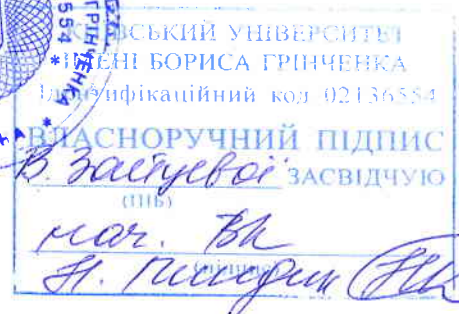 КИЇВСЬКИЙ УНІВЕРСИТЕТ
ІМЕНІ БОРИСА ГРІНЧЕНКА
Ідентифікаційний код 02136554
ВЛАСНОРУЧНИЙ ПІДПИС
В. Зайцевої ЗАСВІДЧУЮ
(ПІБ)
нач. ВК
Н.